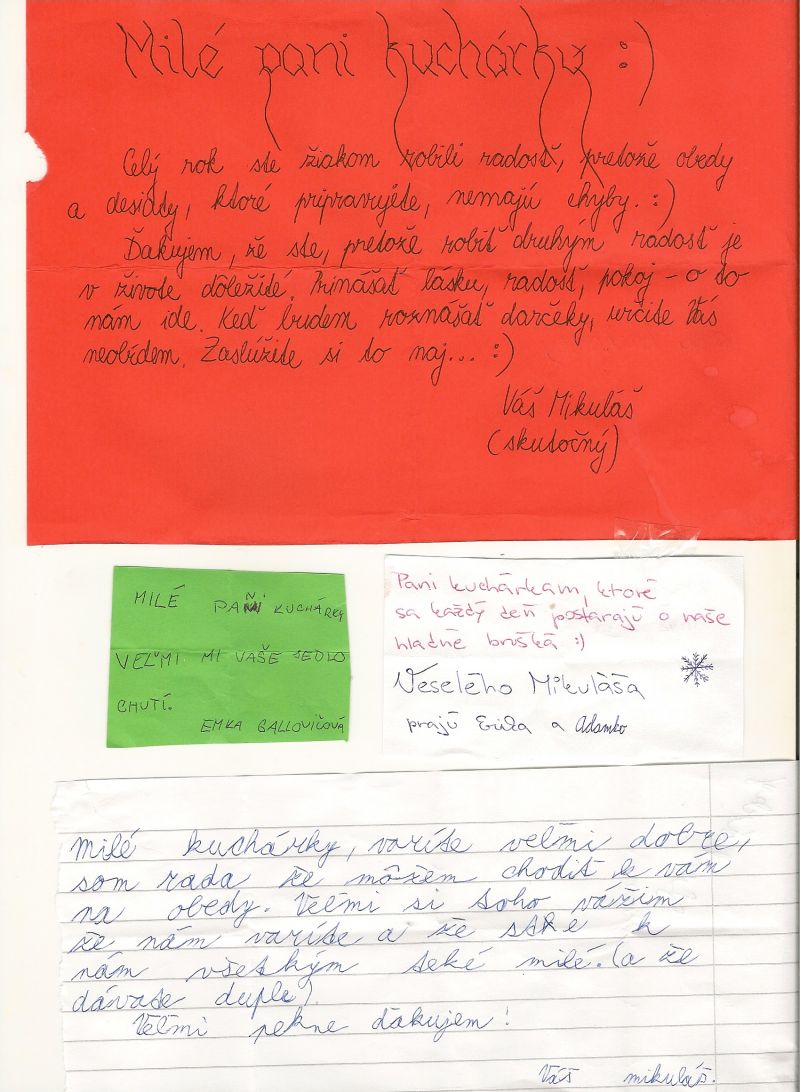 Milé pani kuchárky :)
Celý rok ste žiakom robili radosť, pretože obedy
a desiaty, ktoré pripravujete, nemajú chyby. :)
Ďakujem, že ste, pretože robiť druhým radosť je
v živote dôležité. Prinášať lásku, radosť, pokoj - o to
nám ide. Keď budem roznášať darčeky, určite Vás
neobídem. Zaslúžite si to naj... :)
Váš Mikuláš
(skutočný)
MILÉ PAŇI KUCHÁRKY
VEĽMI MI VAŠE JEDLO
CHUTÍ.
EMKA GALLOVIČOVÁ
Pani kuchárkam, ktoré
sa každý deň postarajú o naše
hladné brušká :)
Veselého Mikuláša
prajú Evička a Adamko
milé kuchárky, varíte veľmi dobre,
som rada že môžem chodiť k vám
na obedy. Veľmi si toho vážim
že nám varíte a že ste k
nám všetkým také milé. (a že
dávate duple).
Veľmi pekne ďakujem!
Váš mikuláš.